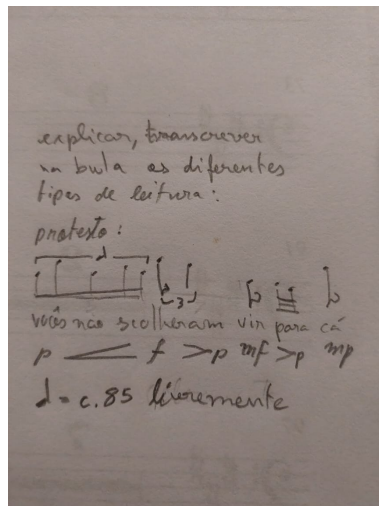 explicar, transcrever
na bula os diferentes
tipos de leitura:
protesto:
3
vocês nao scolheram vir para cá
p f >p mf >p mp
d = c.85 livremente